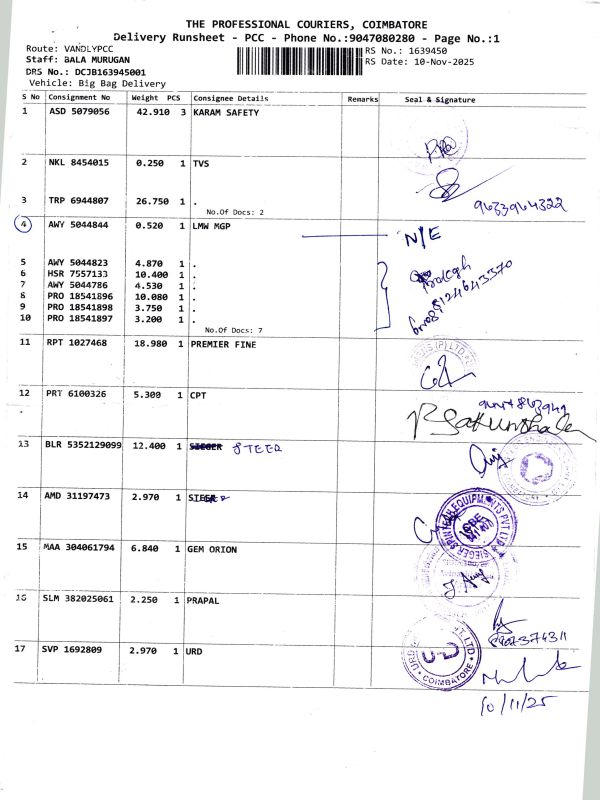 THE PROFESSIONAL COURIERS, COIMBATORE
Delivery Runsheet - PCC - Phone No.:9047080280 - Page No.:1
Route: VANDLYPCC
RS No.: 1639450
Staff: BALA MURUGAN
RS Date: 10-Nov-2025
DRS No.: DCJB163945001
Vehicle: Big Bag Delivery
S No Consignment No Weight PCS Consignee Details Remarks Seal & Signature
1 ASD 5079056 42.910 3 KARAM SAFETY
2 NKL 8454015 0.250 1 TVS
3 TRP 6944807 26.750 1 .
9633964322
No.Of Docs: 2
4 AWY 5044844 0.520 1 LMW MGP
N/E
5 AWY 5044823 4.870 1 .
6 HSR 7557133 10.400 1 .
7 AWY 5044786 4.530 1 .
8 PRO 18541896 10.080 1 .
9 PRO 18541898 3.750 1 .
10 PRO 18541897 3.200 1 .
No.Of Docs: 7
11 RPT 1027468 18.980 1 PREMIER FINE
(P) LTD
12 PRT 6100326 5.300 1 CPT
13 BLR 5352129099 12.400 1 SIEGER STEER
14 AMD 31197473 2.970 1 SIEGER
SIEGER SPINTECH EQUIPMENTS PVT LTD
15 MAA 304061794 6.840 1 GEM ORION
16 SLM 382025061 2.250 1 PRAPAL
17 SVP 1692809 2.970 1 URD
COIMBATORE
10/11/25